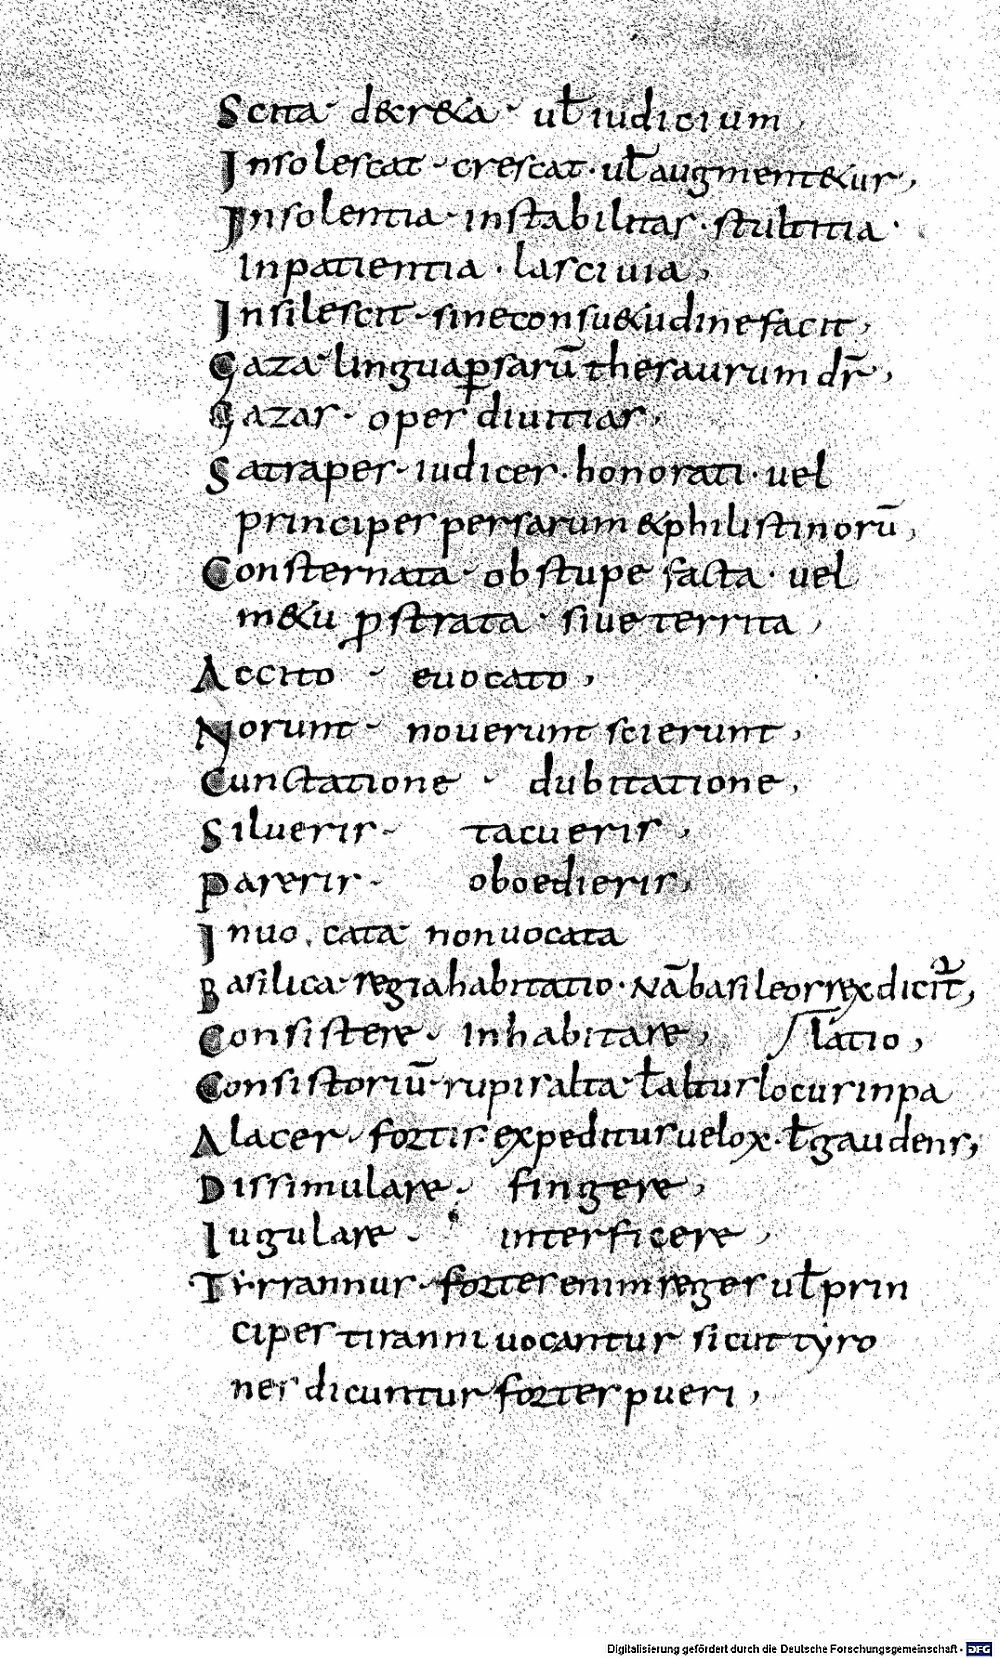 Scita · decr&a · uł iudicium,
Insolescat · crescat · uł augment&ur,
Insolentia · instabilitas · stultitia ·
Inpatientia · lasciuia,
Insilescit · sineconsu&udinefacit,
Gaza · linguap̱sarū thesaurum dr̄,
Gazas · opes diuitias,
Satrapes · iudices · honorati · uel
principes persarum &philistinorū,
Consternata · obstupefacta · uel
m&u ꝓstrata · siue territa,
Accito · euocato,
Norunt · nouerunt scierunt,
Cunctatione · dubitatione,
Silueris · tacueris,
Pareris · oboedieris,
Inuo.cata · nonuocata
Basilica · regiahabitatio · Nā basileos rex dicit᷑,
Consistere · Inhabitare, łatio,
Consistoriū · rupisalta · ł altus locus inpa
Alacer · fortis · expeditus uelox · ł gaudens,
Dissimulare · fingere,
Iugulare · interficere,
Tirrannus · fortes enim reges uł prin
cipes tiranni uocantur sicut tẏro
nes dicuntur fortes pueri,
Digitalisierung gefördert durch die Deutsche Forschungsgemeinschaft - DFG